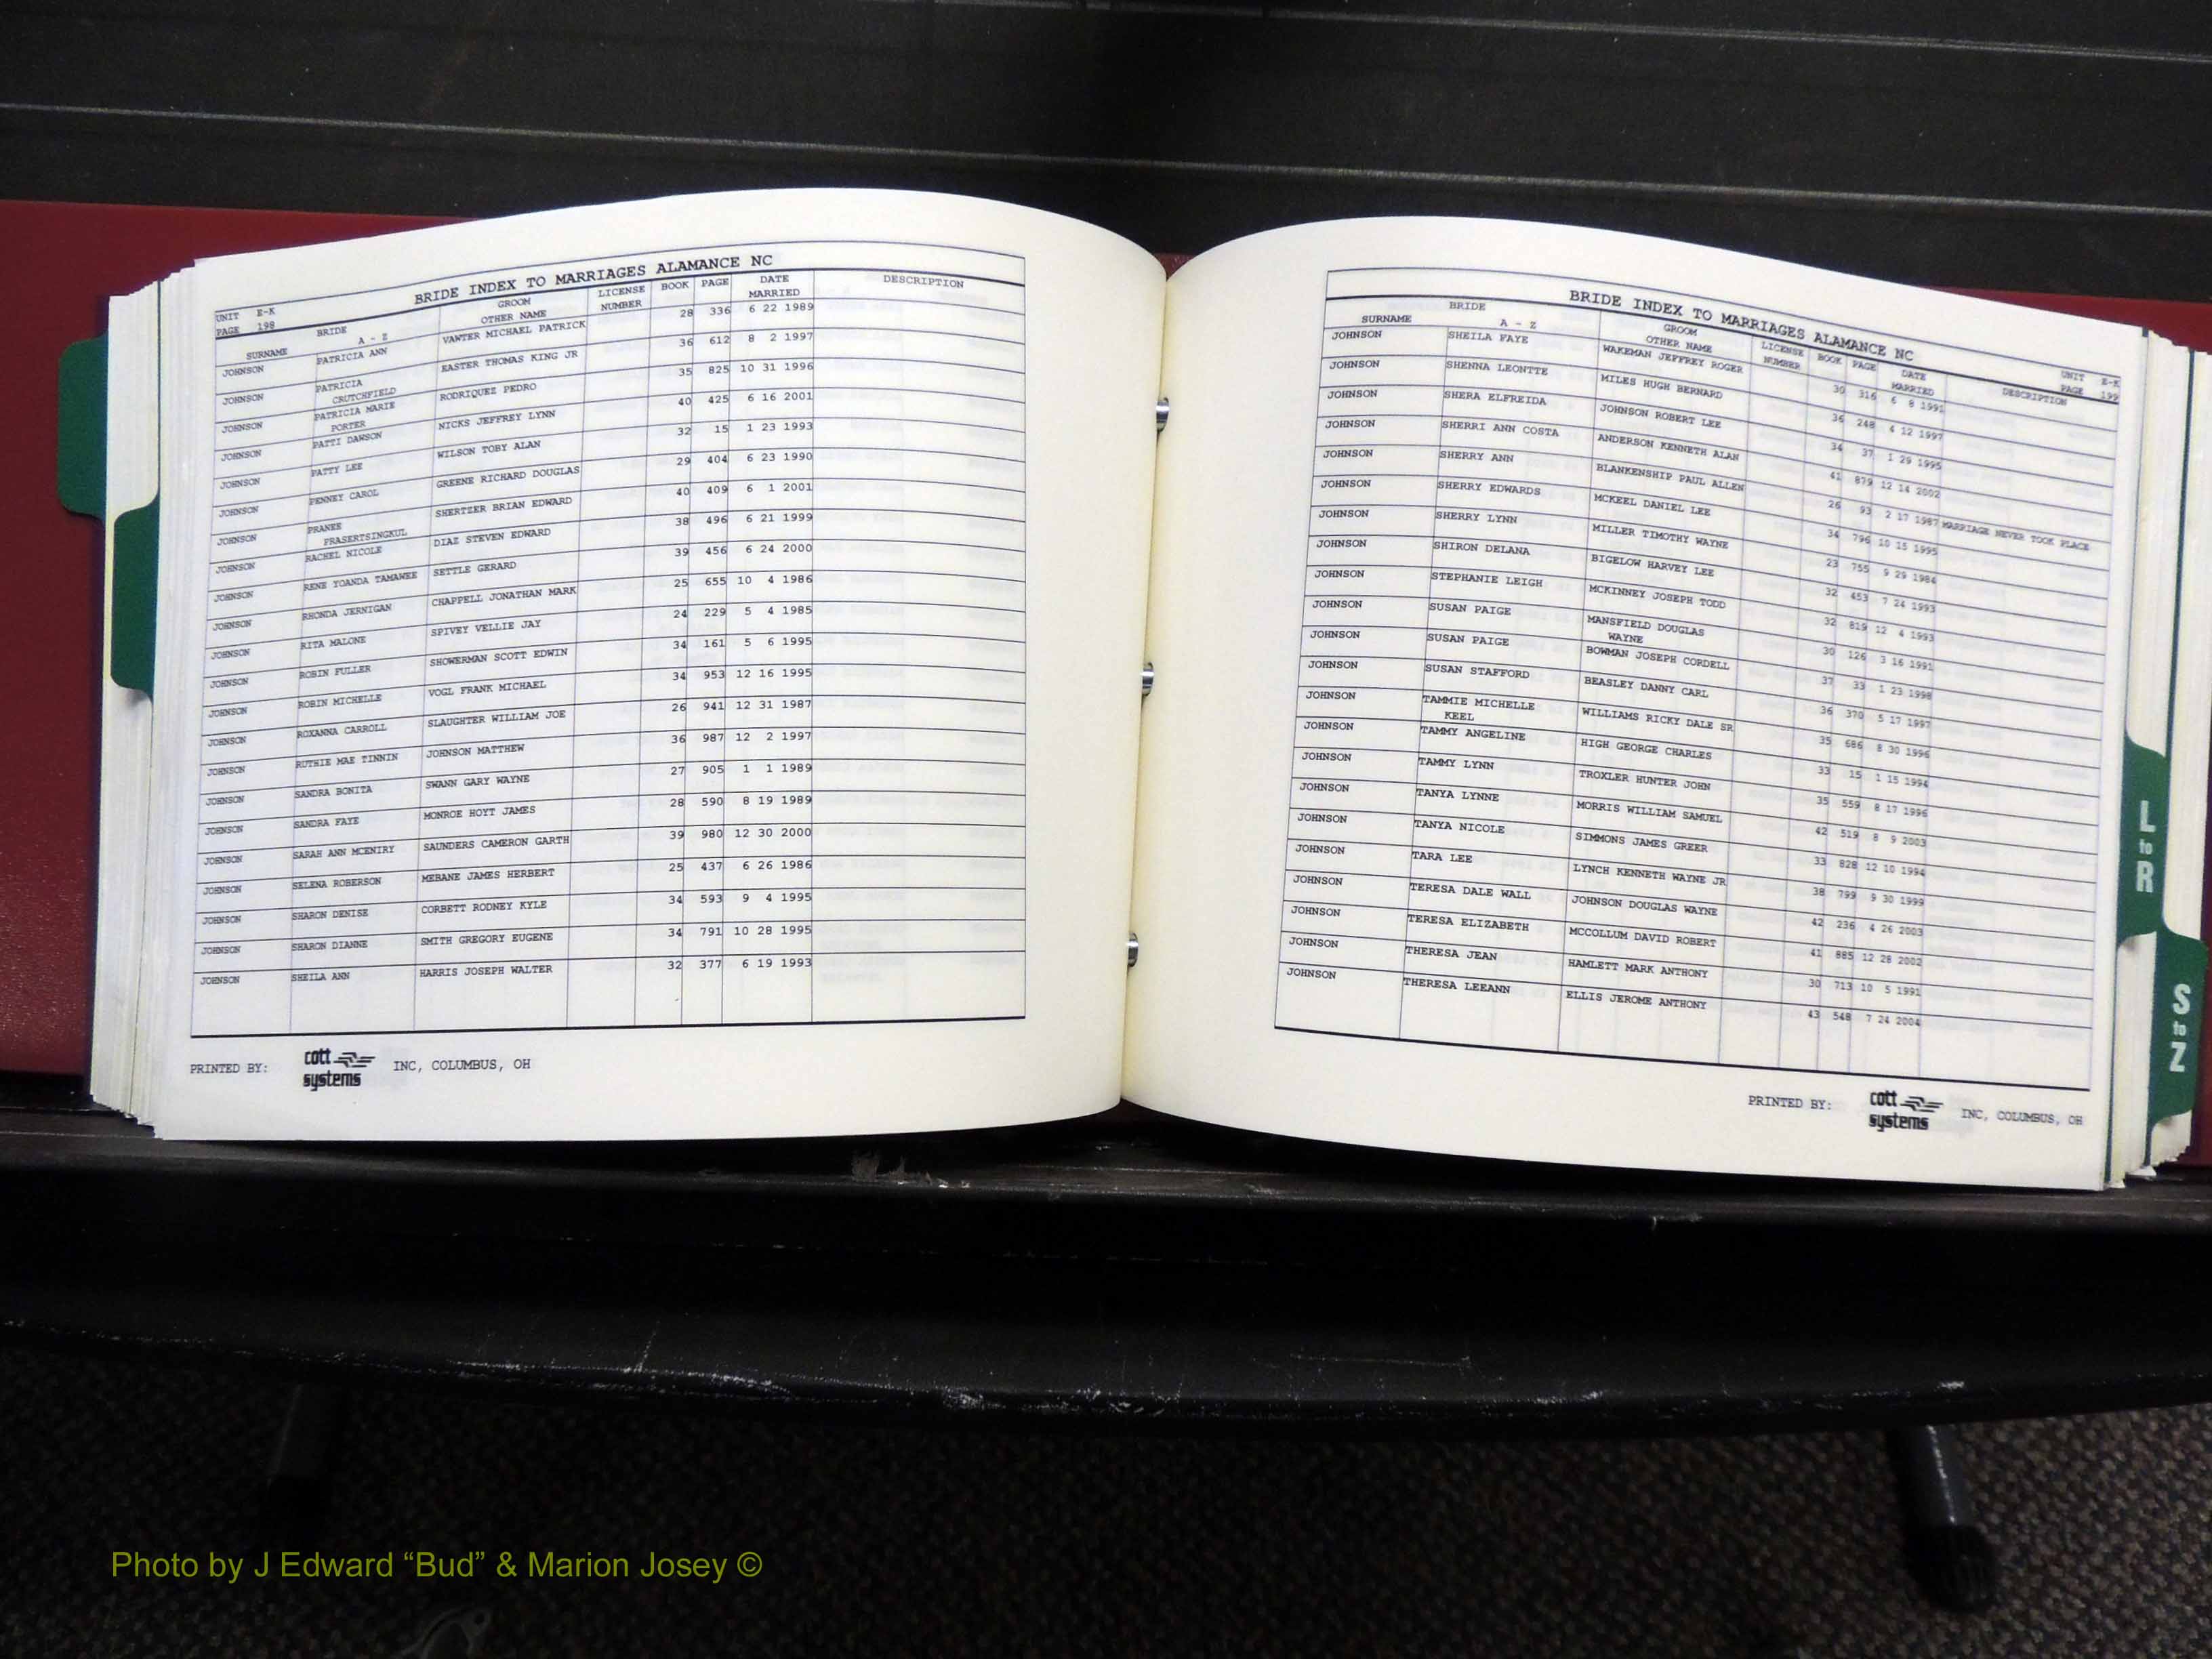 BRIDE INDEX TO MARRIAGES ALAMANCE NC
UNIT E-K
PAGE 198
SURNAME BRIDE A - Z GROOM OTHER NAME LICENSE NUMBER BOOK PAGE DATE MARRIED DESCRIPTION
JOHNSON PATRICIA ANN VAWTER MICHAEL PATRICK 28 336 6 22 1989
JOHNSON PATRICIA CRUTCHFIELD EASTER THOMAS KING JR 36 612 8 2 1997
JOHNSON PATRICIA MARIE PORTER RODRIQUEZ PEDRO 35 825 10 31 1996
JOHNSON PATTI DAWSON NICKS JEFFREY LYNN 40 425 6 16 2001
JOHNSON PATTY LEE WILSON TOBY ALAN 32 15 1 23 1993
JOHNSON PENNEY CAROL GREENE RICHARD DOUGLAS 29 404 6 23 1990
JOHNSON PRANEE PRASERTSINGKUL SHERTZER BRIAN EDWARD 40 409 6 1 2001
JOHNSON RACHEL NICOLE DIAZ STEVEN EDWARD 38 496 6 21 1999
JOHNSON RENE YOANDA TAMAWEE SETTLE GERARD 39 456 6 24 2000
JOHNSON RHONDA JERNIGAN CHAPPELL JONATHAN MARK 25 655 10 4 1986
JOHNSON RITA MALONE SPIVEY VELLIE JAY 24 229 5 4 1985
JOHNSON ROBIN FULLER SHOWERMAN SCOTT EDWIN 34 161 5 6 1995
JOHNSON ROBIN MICHELLE VOGL FRANK MICHAEL 34 953 12 16 1995
JOHNSON ROXANNA CARROLL SLAUGHTER WILLIAM JOE 26 941 12 31 1987
JOHNSON RUTHIE MAE TINNIN JOHNSON MATTHEW 36 987 12 2 1997
JOHNSON SANDRA BONITA SWANN GARY WAYNE 27 905 1 1 1989
JOHNSON SANDRA FAYE MONROE HOYT JAMES 28 590 8 19 1989
JOHNSON SARAH ANN MCENIRY SAUNDERS CAMERON GARTH 39 980 12 30 2000
JOHNSON SELENA ROBERSON MEBANE JAMES HERBERT 25 437 6 26 1986
JOHNSON SHARON DENISE CORBETT RODNEY KYLE 34 593 9 4 1995
JOHNSON SHARON DIANNE SMITH GREGORY EUGENE 34 791 10 28 1995
JOHNSON SHEILA ANN HARRIS JOSEPH WALTER 32 377 6 19 1993
PRINTED BY: cott systems INC, COLUMBUS, OH
BRIDE INDEX TO MARRIAGES ALAMANCE NC
UNIT E-K
PAGE 199
SURNAME BRIDE A - Z GROOM OTHER NAME LICENSE NUMBER BOOK PAGE DATE MARRIED DESCRIPTION
JOHNSON SHEILA FAYE WAKEMAN JEFFREY ROGER 30 316 6 8 1991
JOHNSON SHENNA LEONTTE MILES HUGH BERNARD 36 248 4 12 1997
JOHNSON SHERA ELFREIDA JOHNSON ROBERT LEE 34 37 1 29 1995
JOHNSON SHERRI ANN COSTA ANDERSON KENNETH ALAN 41 879 12 14 2002
JOHNSON SHERRY ANN BLANKENSHIP PAUL ALLEN 26 93 2 17 1987 MARRIAGE NEVER TOOK PLACE
JOHNSON SHERRY EDWARDS MCKEEL DANIEL LEE 34 796 10 15 1995
JOHNSON SHERRY LYNN MILLER TIMOTHY WAYNE 23 755 9 29 1984
JOHNSON SHIRON DELANA BIGELOW HARVEY LEE 32 453 7 24 1993
JOHNSON STEPHANIE LEIGH MCKINNEY JOSEPH TODD 32 819 12 4 1993
JOHNSON SUSAN PAIGE MANSFIELD DOUGLAS WAYNE 30 126 3 16 1991
JOHNSON SUSAN PAIGE BOWMAN JOSEPH CORDELL 37 33 1 23 1998
JOHNSON SUSAN STAFFORD BEASLEY DANNY CARL 36 370 5 17 1997
JOHNSON TAMMIE MICHELLE KEEL WILLIAMS RICKY DALE SR 35 686 8 30 1996
JOHNSON TAMMY ANGELINE HIGH GEORGE CHARLES 33 15 1 15 1994
JOHNSON TAMMY LYNN TROXLER HUNTER JOHN 35 559 8 17 1996
JOHNSON TANYA LYNNE MORRIS WILLIAM SAMUEL 42 519 8 9 2003
JOHNSON TANYA NICOLE SIMMONS JAMES GREER 33 828 12 10 1994
JOHNSON TARA LEE LYNCH KENNETH WAYNE JR 38 799 9 30 1999
JOHNSON TERESA DALE WALL JOHNSON DOUGLAS WAYNE 42 236 4 26 2003
JOHNSON TERESA ELIZABETH MCCOLLUM DAVID ROBERT 41 885 12 28 2002
JOHNSON THERESA JEAN HAMLETT MARK ANTHONY 30 713 10 5 1991
JOHNSON THERESA LEEANN ELLIS JEROME ANTHONY 43 548 7 24 2004
PRINTED BY: cott systems INC, COLUMBUS, OH
L to R
S to Z
Photo by J Edward “Bud” & Marion Josey ©